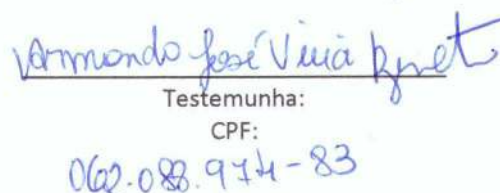 Armando José
Testemunha:
CPF:
062.088.974-83